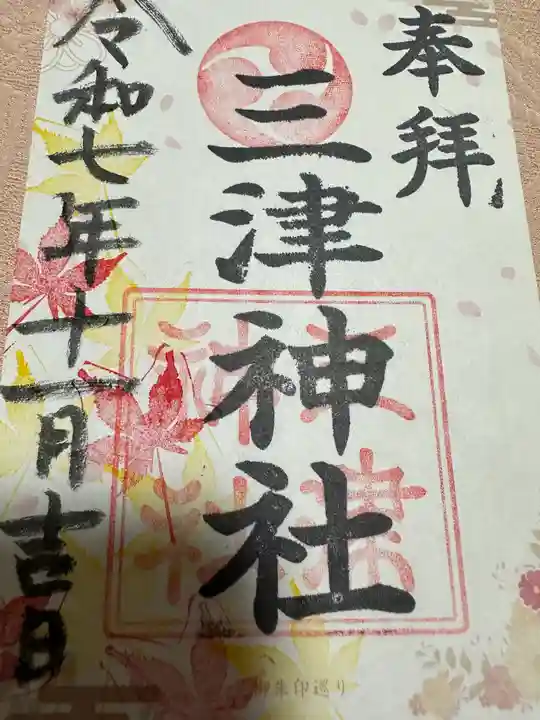 奉拝
三津神社
令和七年十一月吉日
御朱印巡り